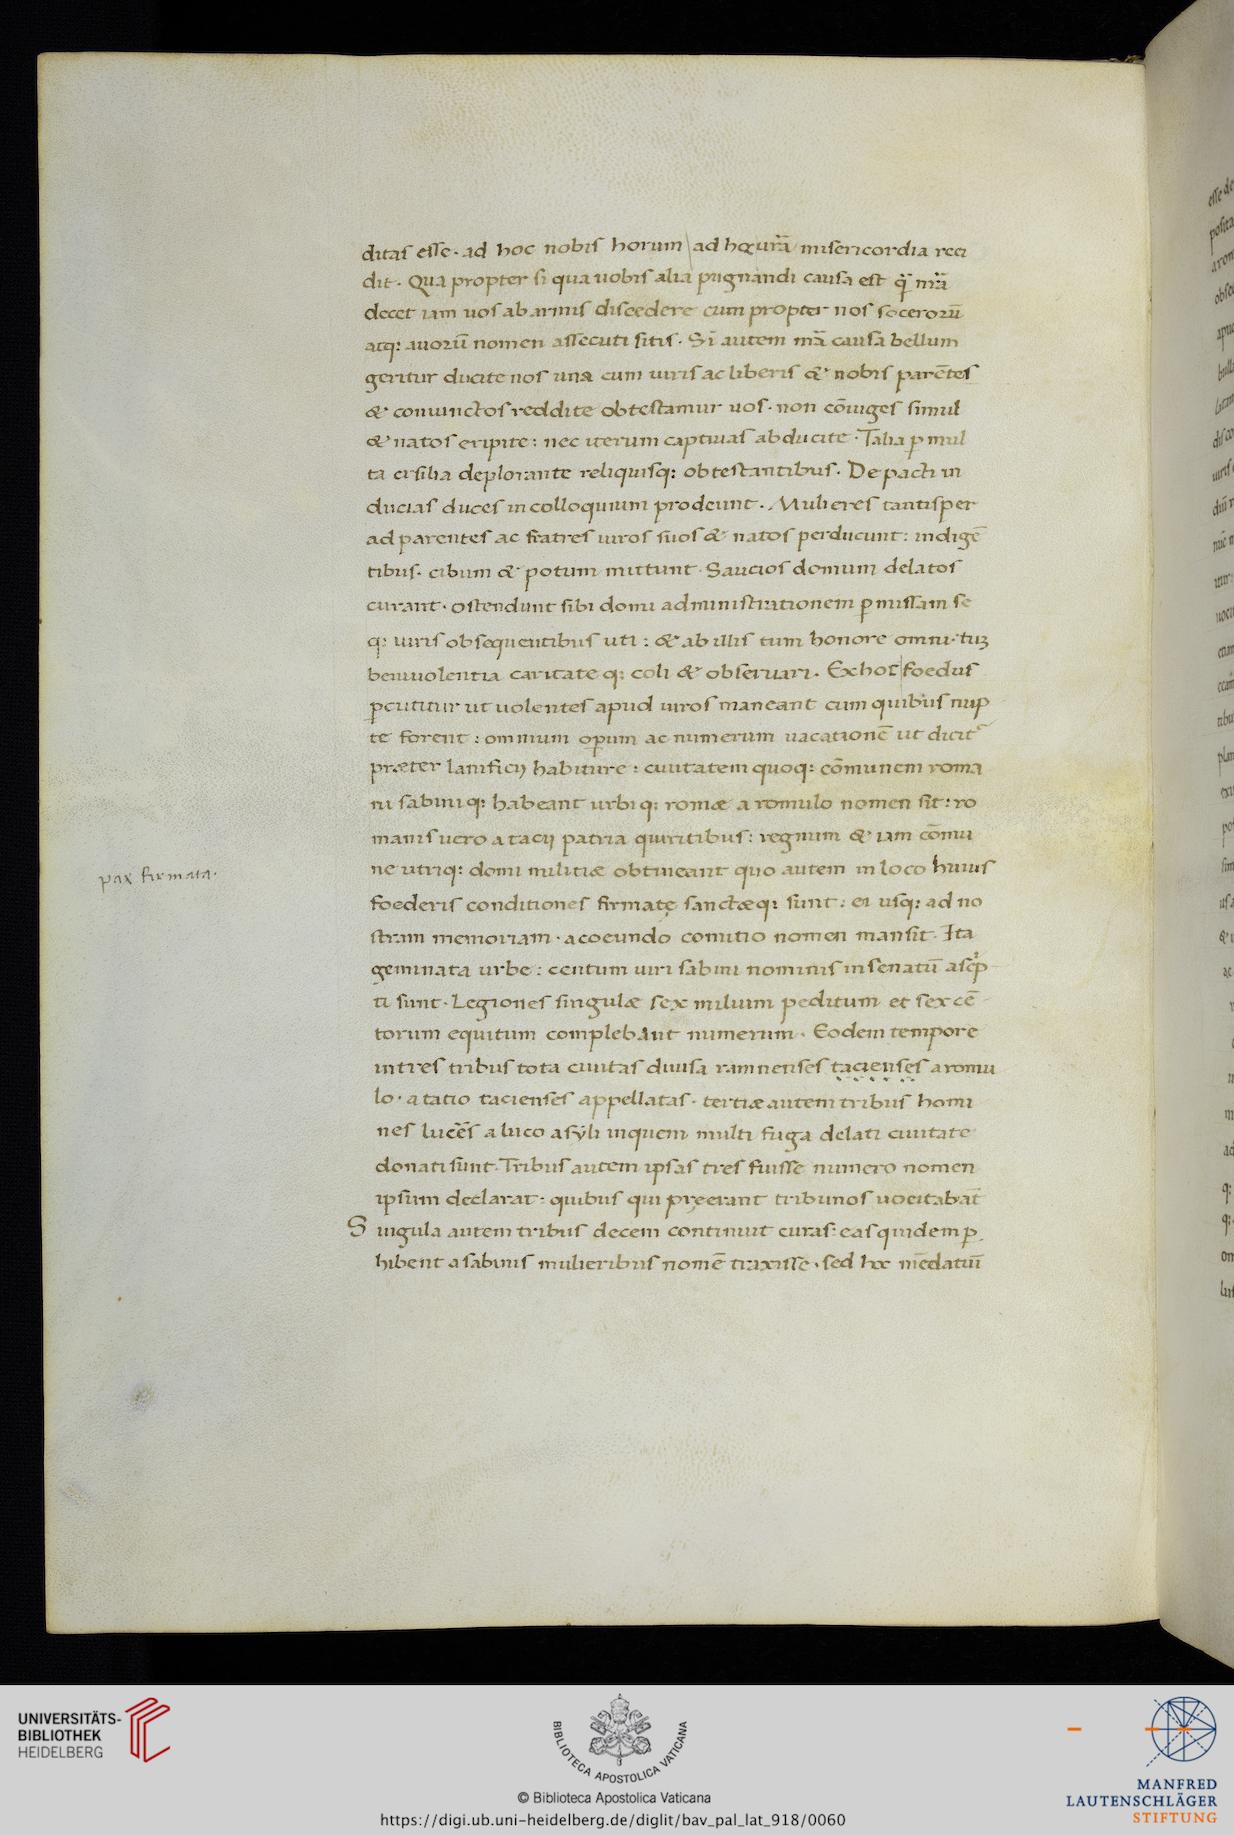 ditas esse · ad hoc nobis horum ad hęc ur̄a misericordia reci
dit · Qua propter si qua uobis alia pugnandi causa est q̈ nr̄a
decet iam uos ab armis discedere cum propter nos socerorū
atq: auorū nomen assecuti sitis · Si autem nr̄a causa bellum
geritur ducite nos una cum uiris ac liberis & nobis parētes
& conuinctos reddite obtestamur uos · non cōiuges simul
& natos eripite : nec iterum captiuas abducite · Talia ꝑ mul
ta ersilia deplorante reliquisq: obtestantibus · De pacti in
ducias duces in colloquium prodeunt · Mulieres tantisper
ad parentes ac fratres uiros suos & natos perducunt : indigē
tibus · cibum & potum mittunt · Saucios domum delatos
curant · ostendunt sibi domi administrationem ꝑmissam se
q: uiris obsequentibus uti : & ab illis tum honore omni · tuʒ
beniuolentia caritate q: coli & obseruari · Ex hoc foedus
ꝑcutitur ut uolentes apud uiros maneant cum quibus nup
te forent : omnium oꝑum ac numerum uacationē ut dicit̃
præter lanificij habiture : ciuitatem quoq: cōmunem roma
ni sabiniq: habeant urbi q: romæ a romulo nomen sit : ro
manis uero a tacij patria quiritibus : regnum & iam cōmu
ne utriq: domi militiæ obtineant quo autem in loco huius
foederis conditiones firmatę sanctæq: sunt : ei usq: ad no
stram memoriam · a coeundo comitio nomen mansit · Ita
geminata urbe : centum uiri sabini nominis in senatū ascp̓
ti sunt · Legiones singulæ sex milium peditum et sex cē
torum equitum complebant numerum · Eodem tempore
in tres tribus tota ciuitas diuisa ramnenses tacienses a romu
lo · a tatio tacienses appellatas · tertiæ autem tribus homi
nes lucēs a luco asyli inquem multi fuga delati ciuitate
donati sunt · Tribus autem ipsas tres fuisse numero nomen
ipsum declarat · quibus qui pręerant tribunos uocitabāt
Singula autem tribus decem continuit curas : eas quidem ꝑ
hibent a sabinis mulieribus nomē traxisse · sed hoc mēdatiū
pax firmata ·
UNIVERSITÄTS-
BIBLIOTHEK
HEIDELBERG
BIBLIOTECA APOSTOLICA VATICANA
© Biblioteca Apostolica Vaticana
https://digi.ub.uni-heidelberg.de/diglit/bav_pal_lat_918/0060
MANFRED
LAUTENSCHLÄGER
STIFTUNG